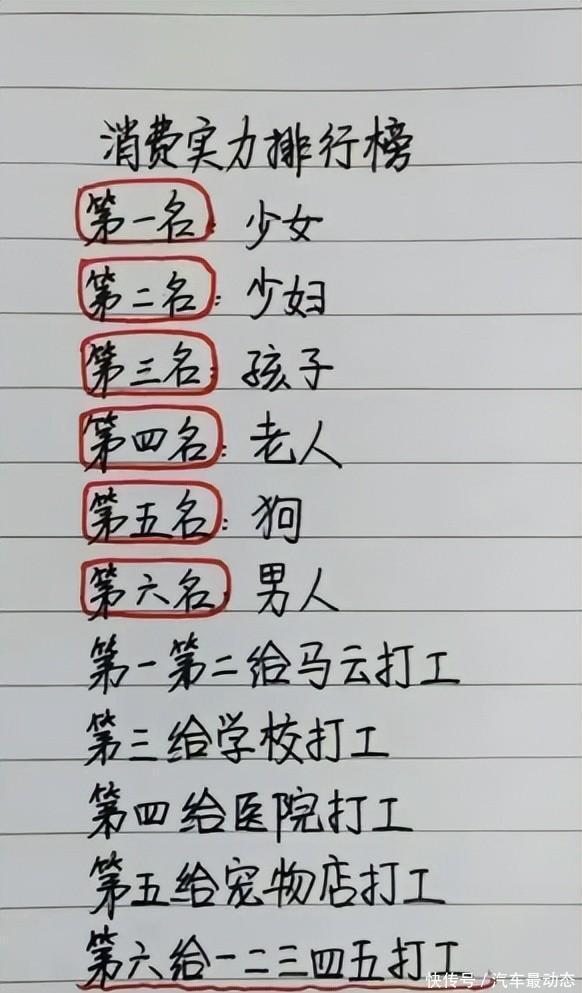 消费实力排行榜
第一名：少女
第二名：少妇
第三名：孩子
第四名：老人
第五名：狗
第六名：男人
第一第二给马云打工
第三给学校打工
第四给医院打工
第五给宠物店打工
第六给一二三四五打工
快传号／汽车最动态